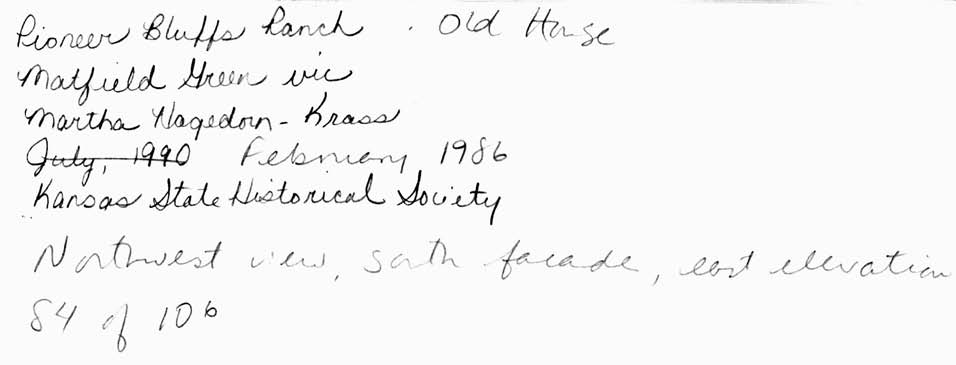 Pioneer Bluffs Ranch . Old House
Matfield Green vic
Martha Hagedorn-Krass
July, 1990 February 1986
Kansas State Historical Society
Northwest view, south facade, east elevation
84 of 106